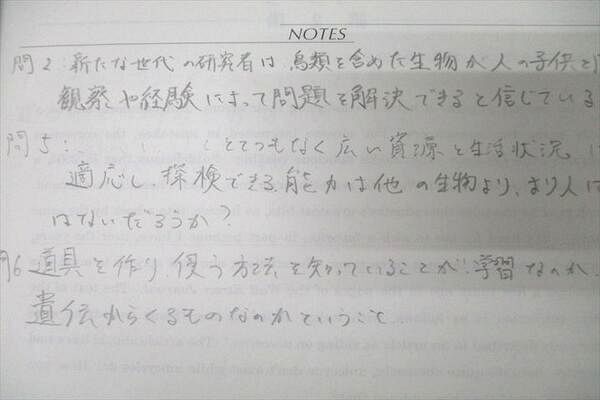 NOTES
問2:新たな世代の研究者は鳥類を含めた生物が人の子供と同
観察や経験によって問題を解決できると信じている
問5: とてつもなく広い資源と生活状況に
適応し、探検できる能力は他の生物より、より人に
はないだろうか?
問6 道具を作り、使う方法を知っていることが、学習なのか、
遺伝からくるものなのかということ.